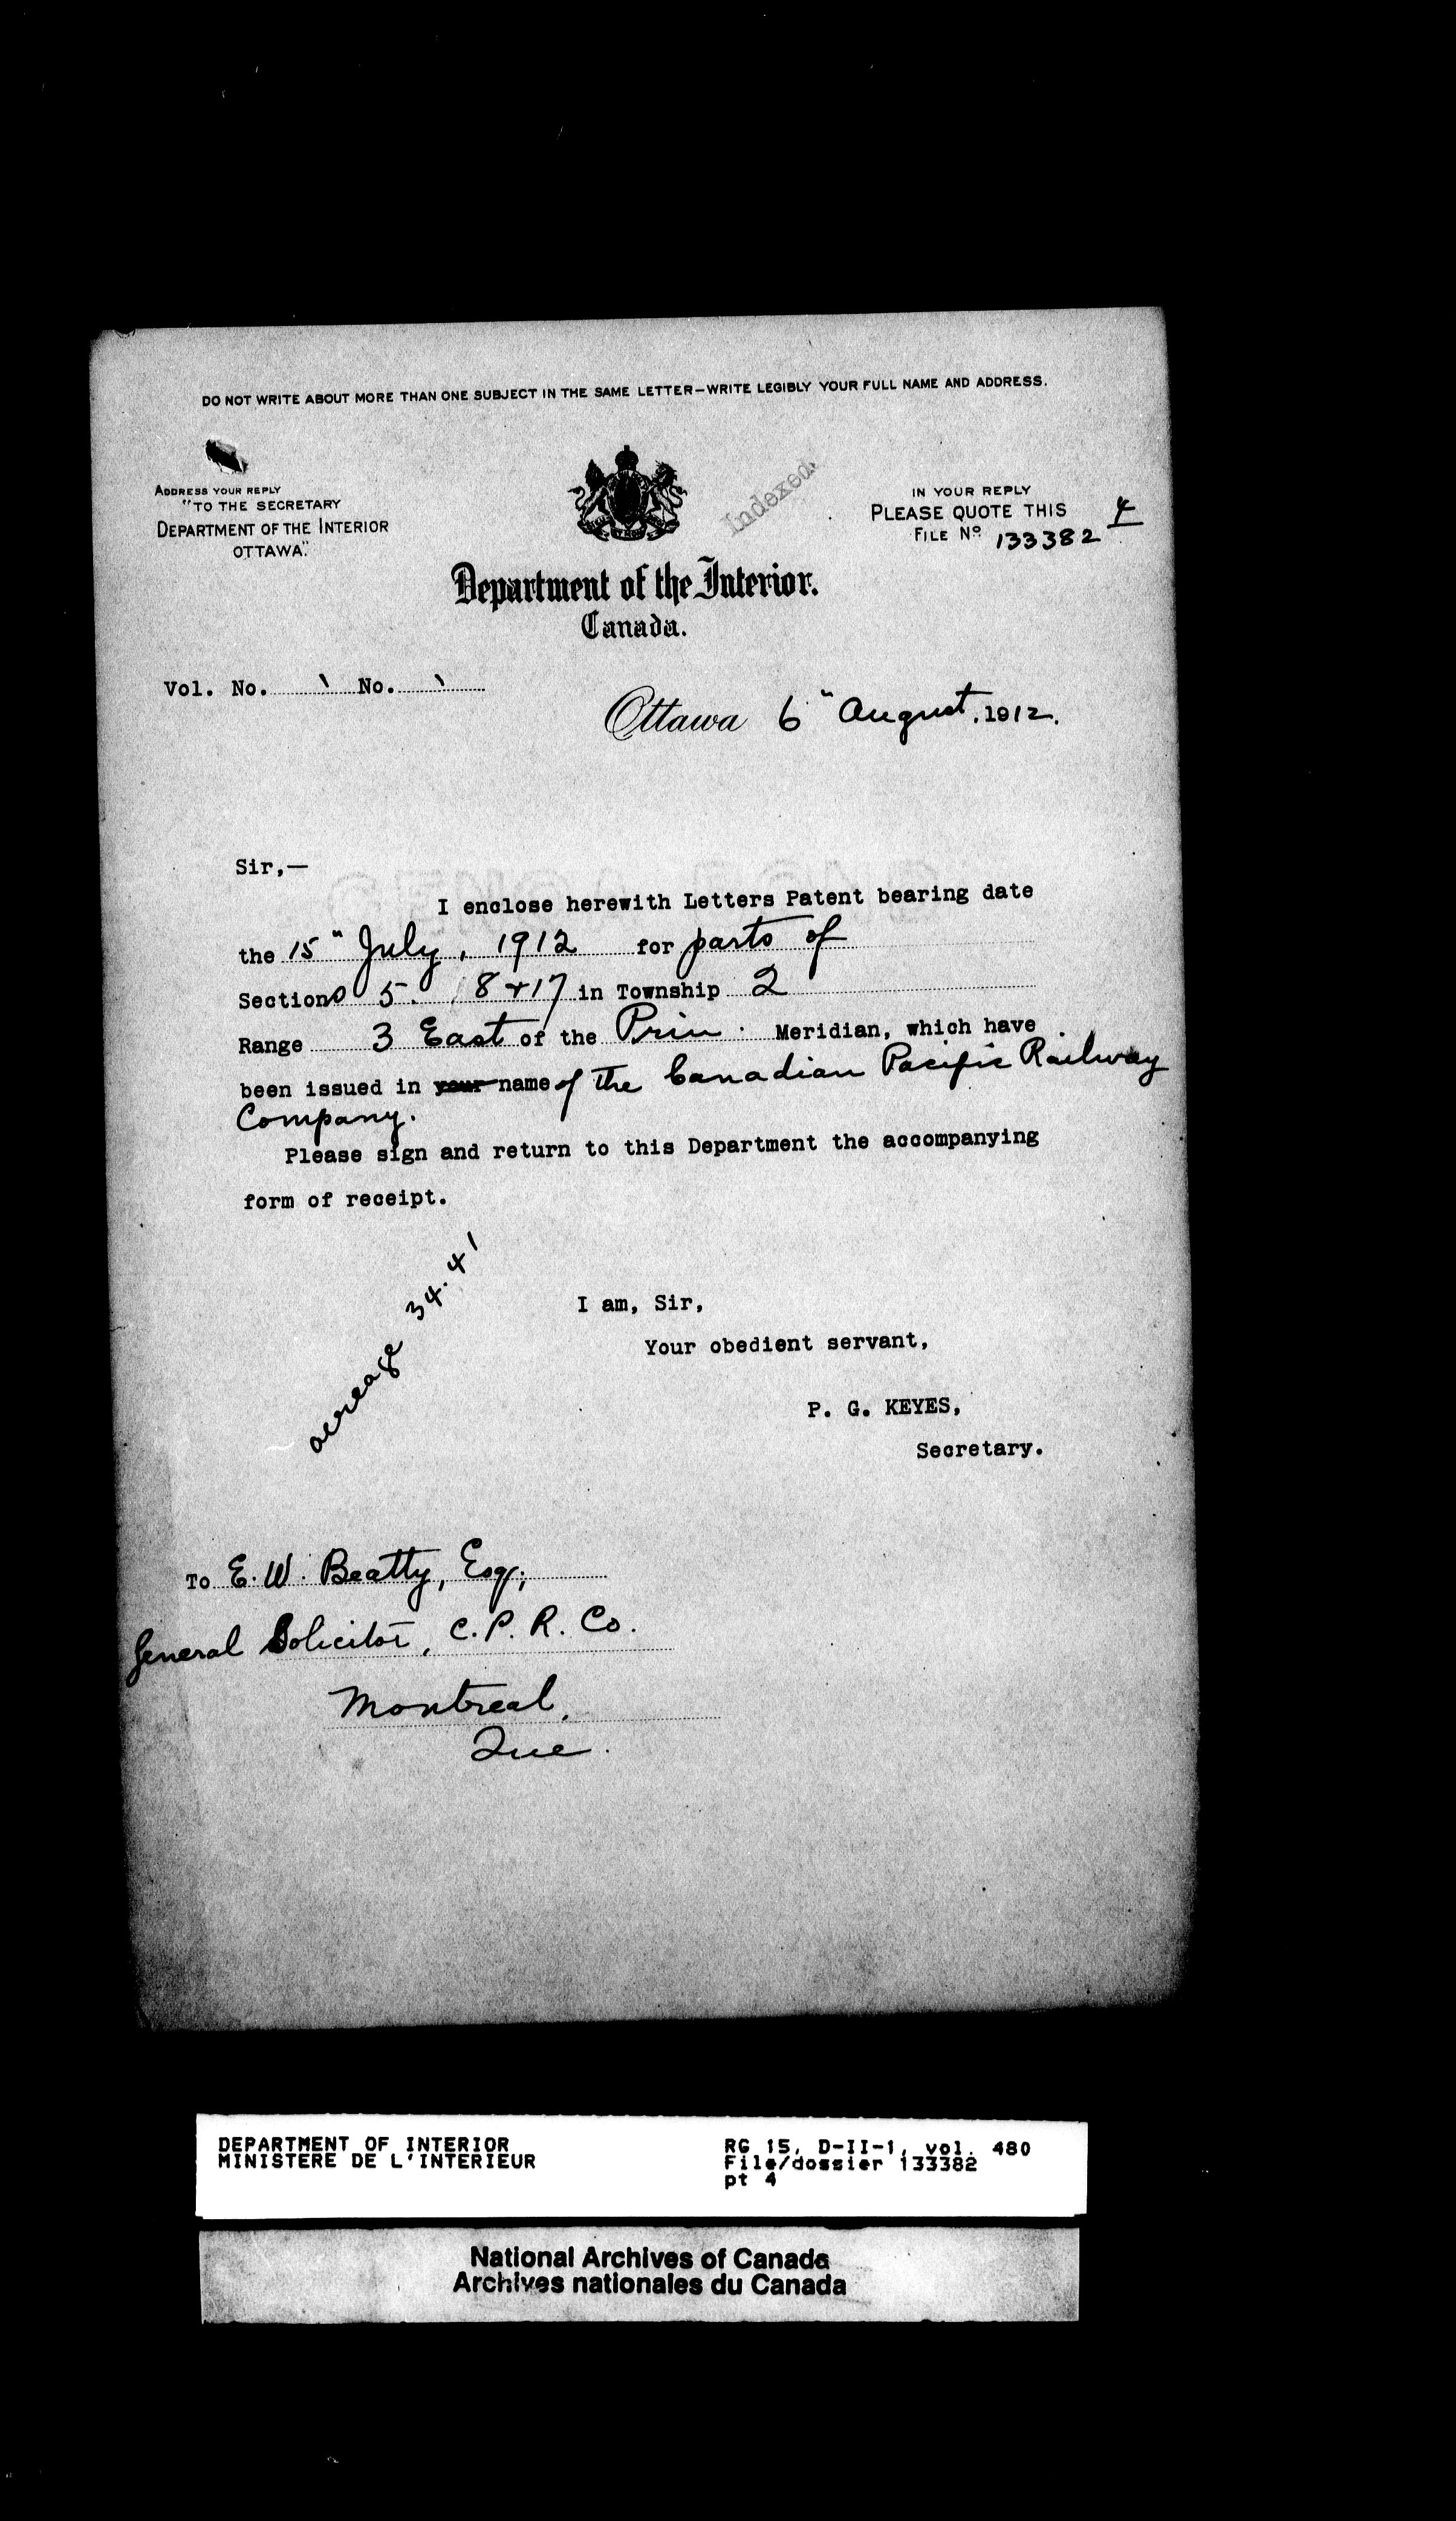 DO NOT WRITE ABOUT MORE THAN ONE SUBJECT IN THE SAME LETTER—WRITE LEGIBLY YOUR FULL NAME AND ADDRESS.
ADDRESS YOUR REPLY
"TO THE SECRETARY
DEPARTMENT OF THE INTERIOR
OTTAWA."
Indexed.
IN YOUR REPLY
PLEASE QUOTE THIS
FILE No. 133382 4
Department of the Interior.
Canada.
Vol. No. No.
Ottawa 6" August, 1912.
Sir,—
I enclose herewith Letters Patent bearing date
the 15" July, 1912 for parts of
Sections 5. 8 + 17 in Township 2
Range 3 East of the Prin. Meridian, which have
been issued in your name of the Canadian Pacific Railway
Company.
Please sign and return to this Department the accompanying
form of receipt.
acreage 34.41
I am, Sir,
Your obedient servant,
P. G. KEYES,
Secretary.
To E. W. Beatty, Esq.,
General Solicitor, C. P. R. Co.
Montreal,
Que.
DEPARTMENT OF INTERIOR
MINISTERE DE L'INTERIEUR
RG 15, D-II-1, vol. 480
File/dossier 133382
pt 4
National Archives of Canada
Archives nationales du Canada